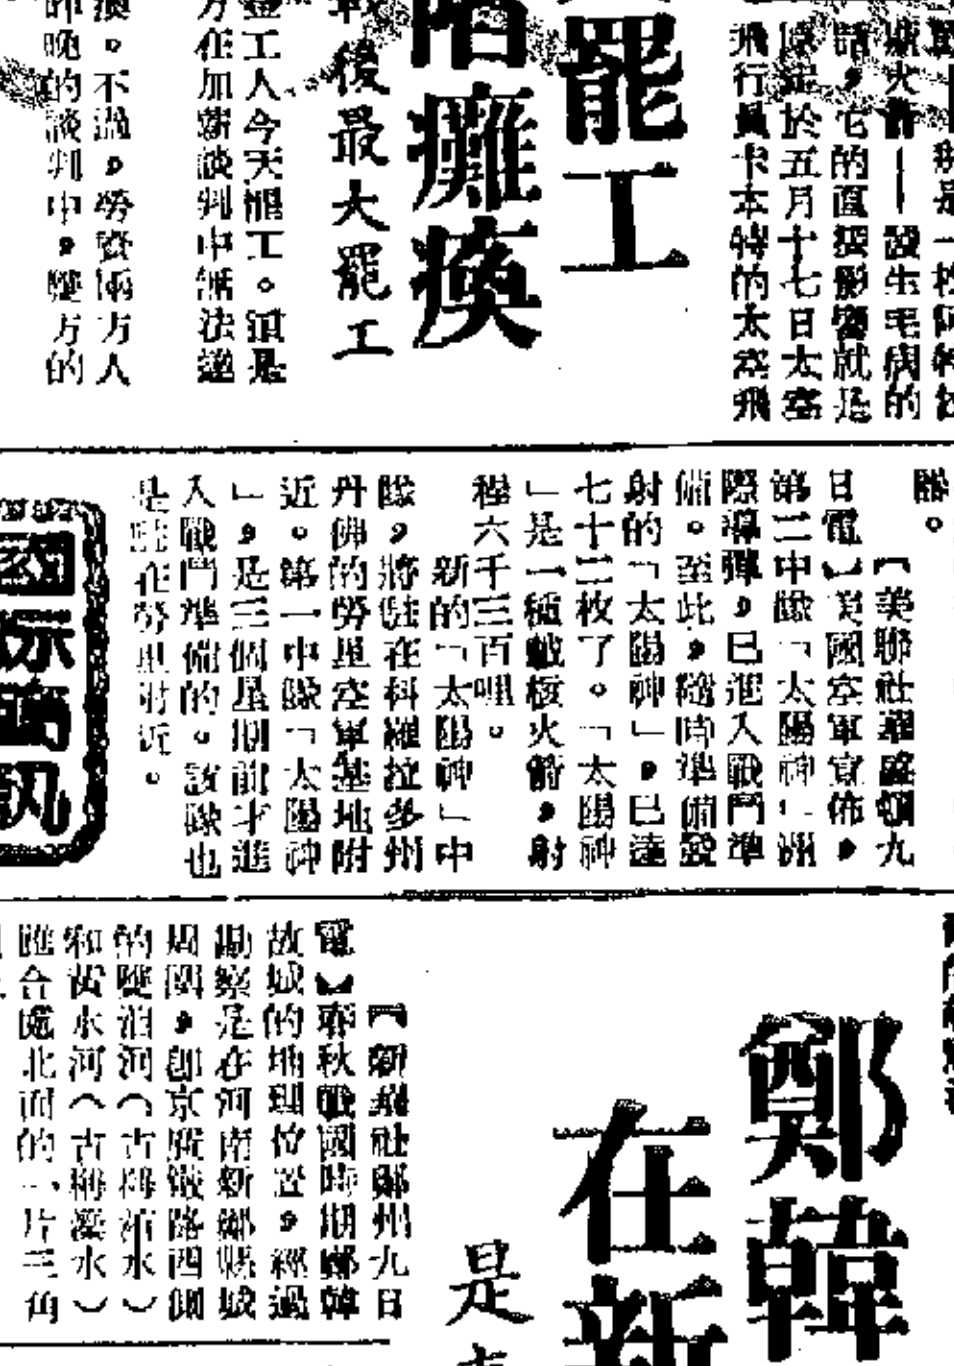 罷工
陷癱瘓
戰後最大罷工
飛行員卡本特的太空飛
定於五月十七日太空
話，它的直接影響就是
設生毛病的
工人今天罷工。這是
方在加薪談判中無法達
不過，勞資兩方人
昨晚的談判中，雙方的
隊。
【美聯社華盛頓九
日電】美國空軍宣佈，
第二中隊「太陽神」洲
際導彈，已進入戰鬥準
備。至此，隨時準備發
射的「太陽神」，已達
七十二枚了。「太陽神
」是一種載核火箭，射
程六千三百哩。
新的「太陽神」中
隊，將駐在科羅拉多州
丹佛的勞里空軍基地附
近。第一中隊「太陽神
」，是三個星期前才進
入戰鬥準備的。該隊也
是駐在勞里附近。
國際簡訊
鄭韓
在新
是
【新華社鄭州九日
電】春秋戰國時期鄭韓
故城的地理位置，經過
勘察是在河南新鄭縣城
周圍，即京廣鐵路西側
的雙洎河（古稱洧水）
和黃水河（古稱溱水）
匯合處北面的一片三角